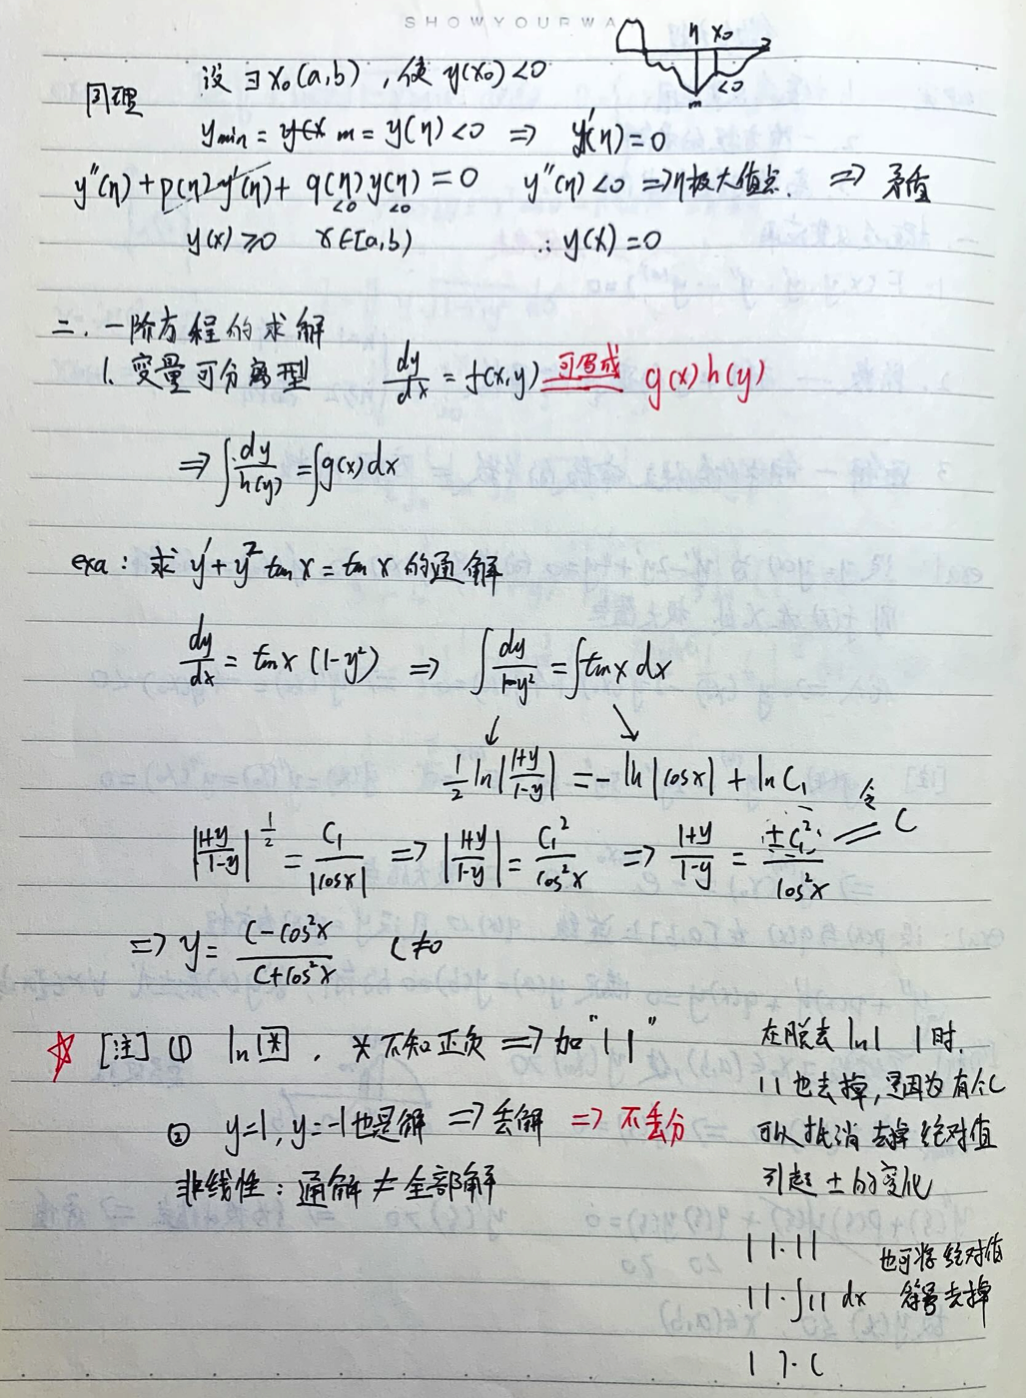 SHOWYOURWA
同理 设 ∃ x₀(a,b) , 使 y(x₀)<0
η x₀
<0
m
y min = y(x) m = y(η)<0 ⇒ y'(η)=0
y''(η)+p(η)y'(η)+ q(η)y(η)=0 y''(η)<0 ⇒η极大值点. ⇒ 矛盾
<0 <0
y(x)≥0 x∈[a,b) ∴ y(x)=0
二. 一阶方程的求解
1. 变量可分离型 dy/dx = f(x,y) 可写成 g(x)h(y)
⇒ ∫dy/h(y) = ∫g(x)dx
exa: 求 y'+y² tan x = tan x 的通解
dy/dx = tan x (1-y²) ⇒ ∫dy/1-y² = ∫tan x dx
↙ ↘
1/2 ln|1+y/1-y| = -ln|cosx| + ln C₁
|1+y/1-y|^1/2 = C₁/|cosx| ⇒ |1+y/1-y| = C₁²/cos²x ⇒ 1+y/1-y = ±C₁²/cos²x 令 C
⇒ y = C-cos²x/C+cos²x C≠0
☆ [注] ① ln|*| , * 不知正负 ⇒ 加"| |"
② y=1, y=-1也是解 ⇒ 丢解 ⇒ 不丢分
非线性: 通解 ≠ 全部解
在脱去 ln| |时,
| |也去掉, 是因为有个C
可以抵消去掉绝对值
引起 ± 的变化
| |·| |
| |·∫| | dx
| |·C
也可将绝对值
符号去掉